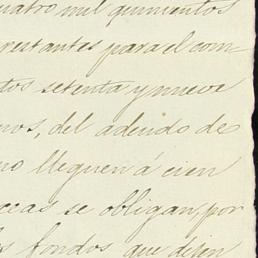 uatro mil quinientos
restantes para el com-
tos setenta y nueve
nos, del adeudo de
no lleguen á cien
se obligan, por
fondos que